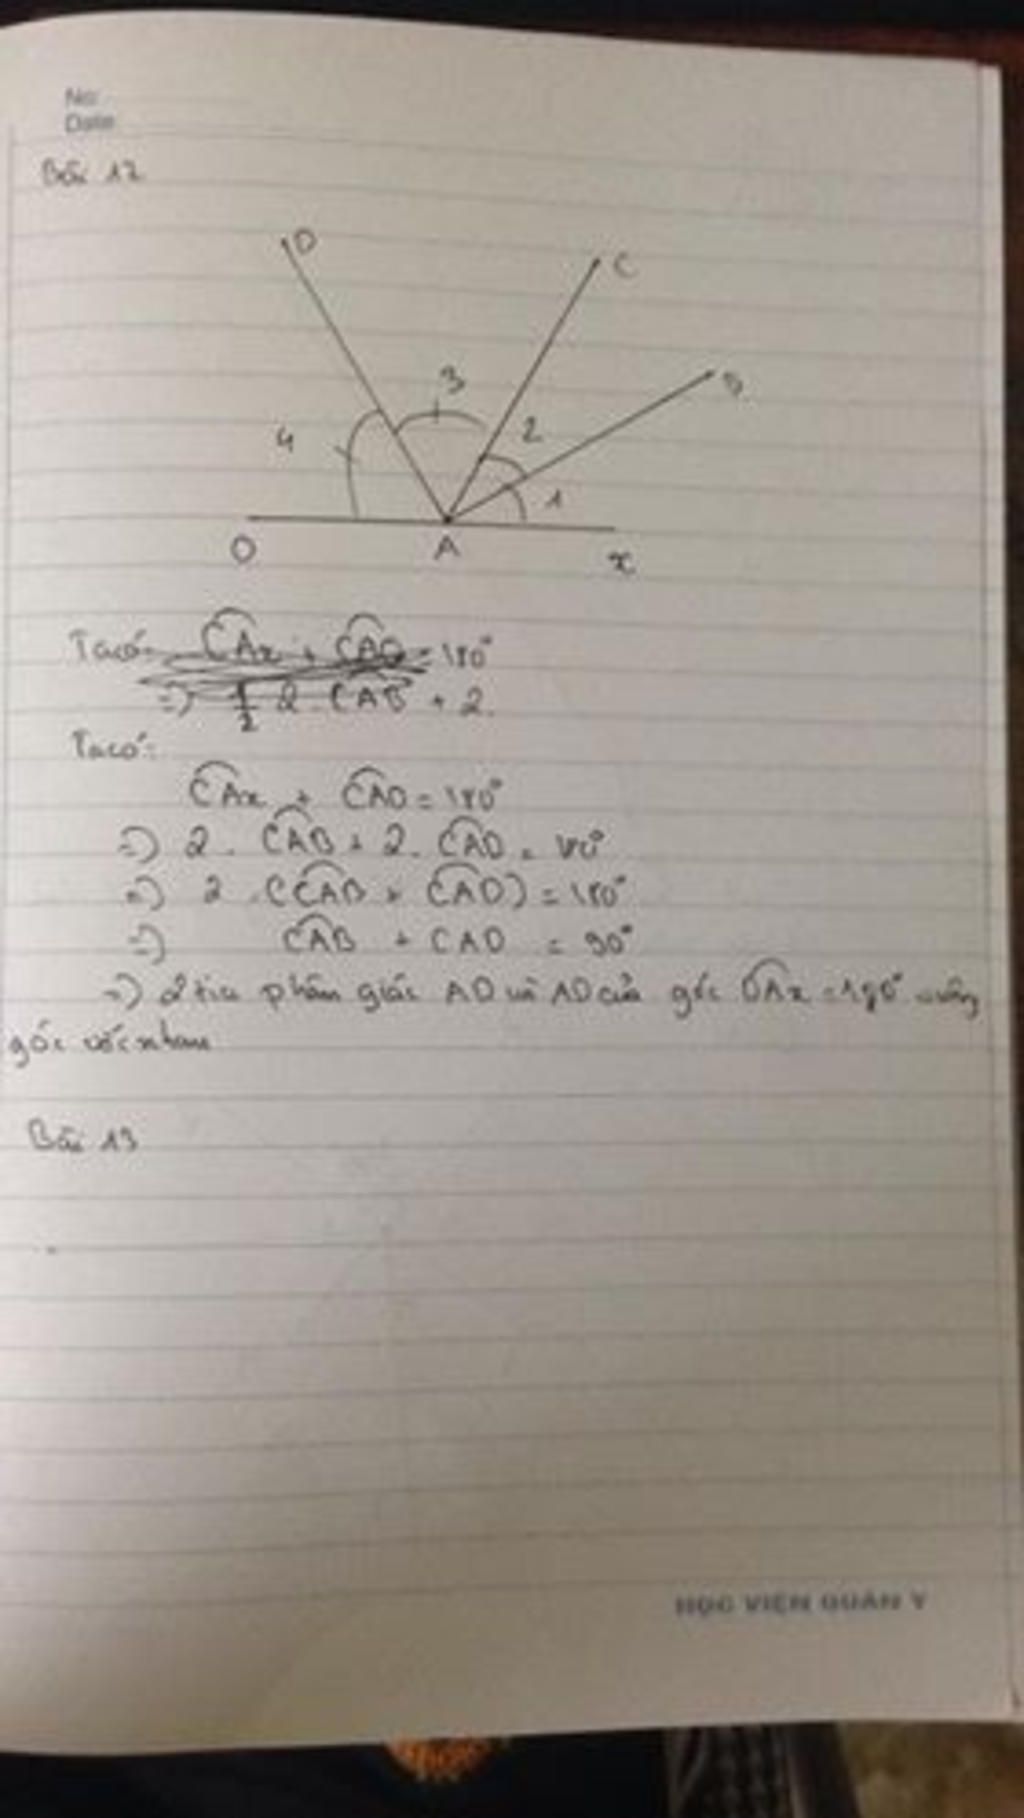 No:
Date
Bài 12
D
C
B
3
4
2
1
O
A
x
Ta có: CAx + CAO = 180°
=> 1/2 2 CAB + 2.
Ta có:
CAx + CAO = 180°
=> 2. CAB + 2. CAD = 180°
=> 2 (CAB + CAD) = 180°
=> CAB + CAD = 90°
=> 2 tia phân giác AD và AD của góc OAx = 180° vuông
góc với nhau
Bài 13
HỌC VIỆN QUÂN Y